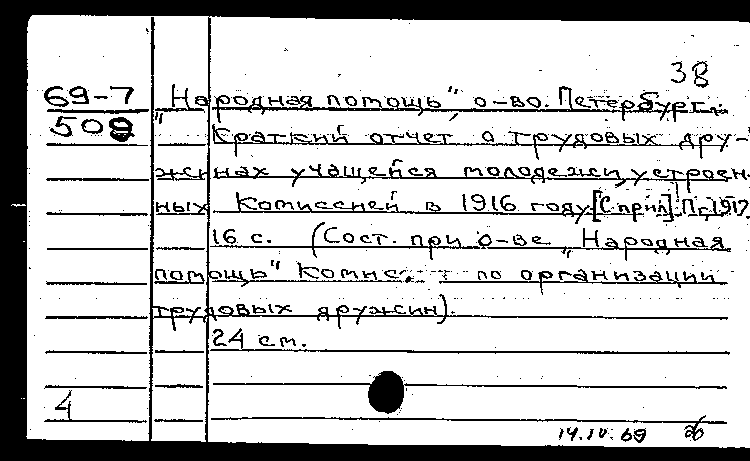 38
69-7 „Народная помощь", о-во. Петербург.
509 Краткий отчет о трудовых дру-
жинах учащейся молодежи, устроен-
ных Комиссией в 1916 году. [С прил.]. Пг, 1917.
16 с. (Сост. при о-ве „Народная
помощь" по организации
трудовых дружин).
24 см.
4
14.IV.69